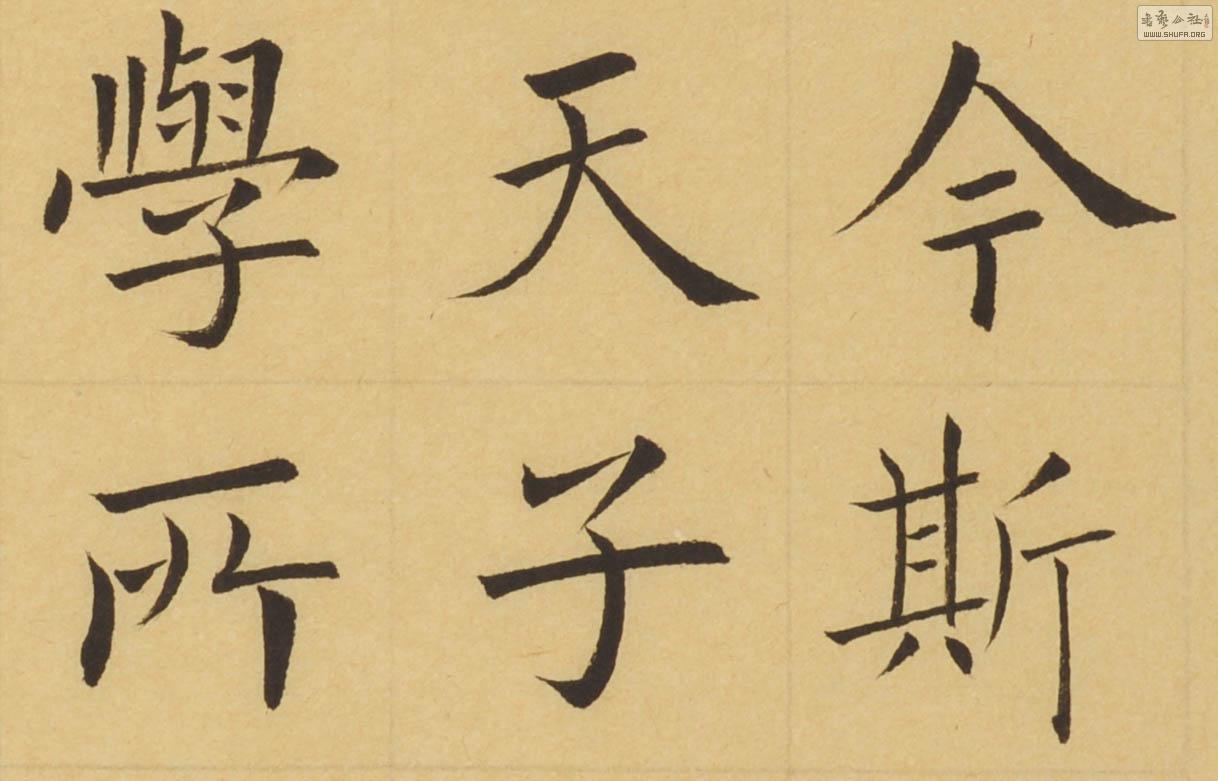 今斯
天子
學所
书艺公社
WWW.SHUFA.ORG